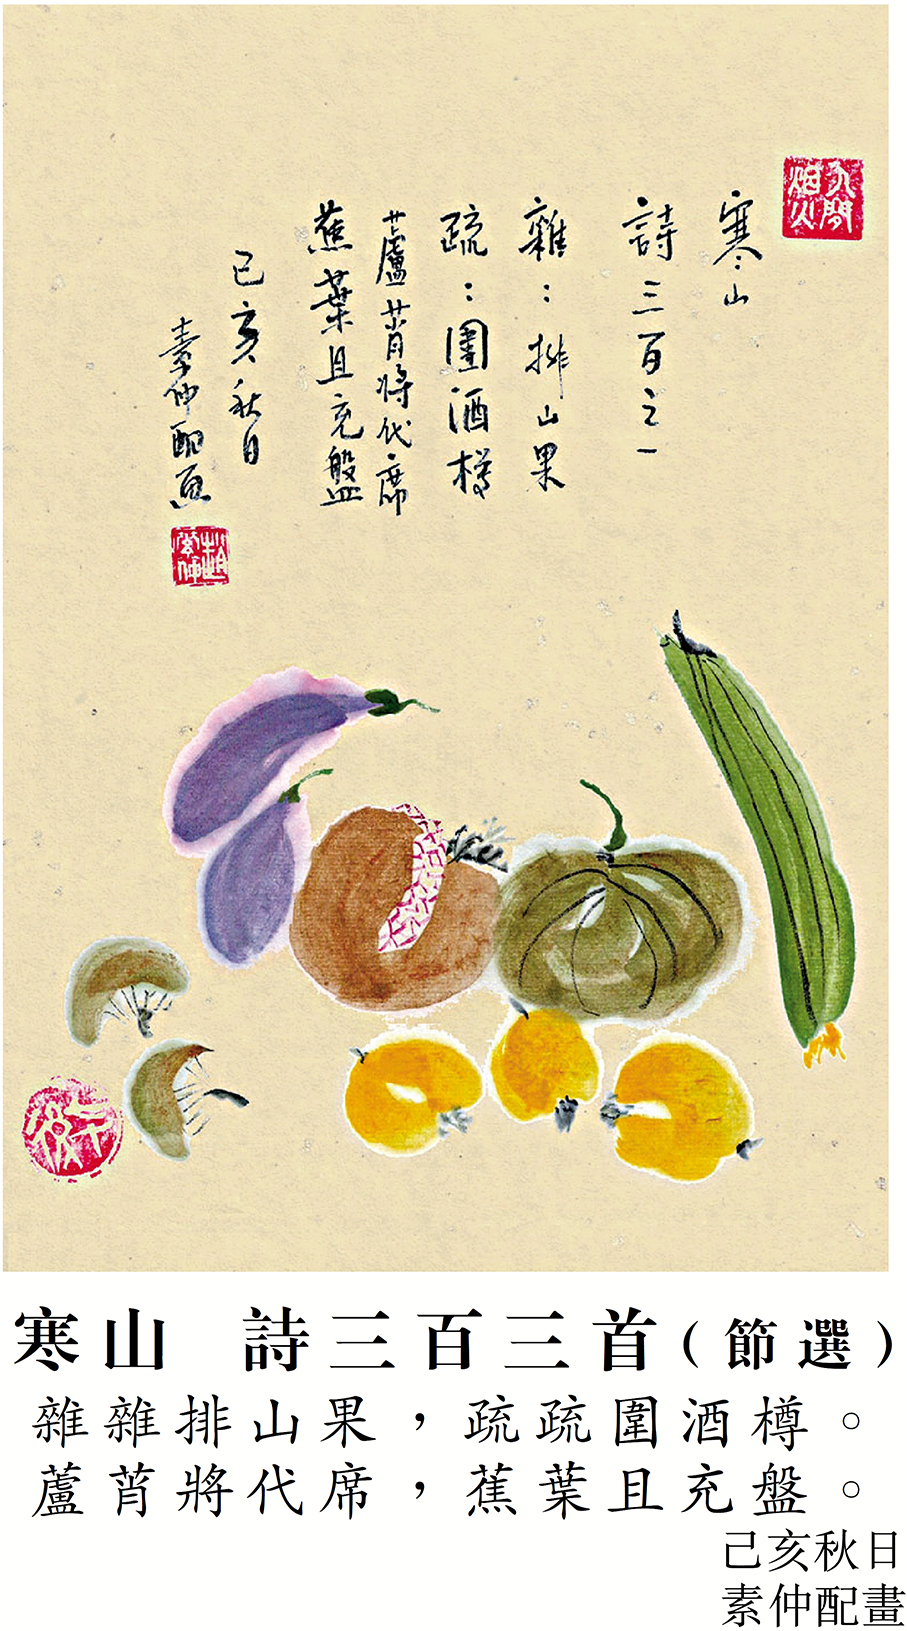 人間
煙火
寒山
詩三百之一
雜：排山果
疏：圍酒樽
蘆莦將代席
蕉葉且充盤
己亥秋日
素仲配画
趙
素仲
寒山　詩三百三首（節選）
雜雜排山果，疏疏圍酒樽。
蘆莦將代席，蕉葉且充盤。
己亥秋日
素仲配畫